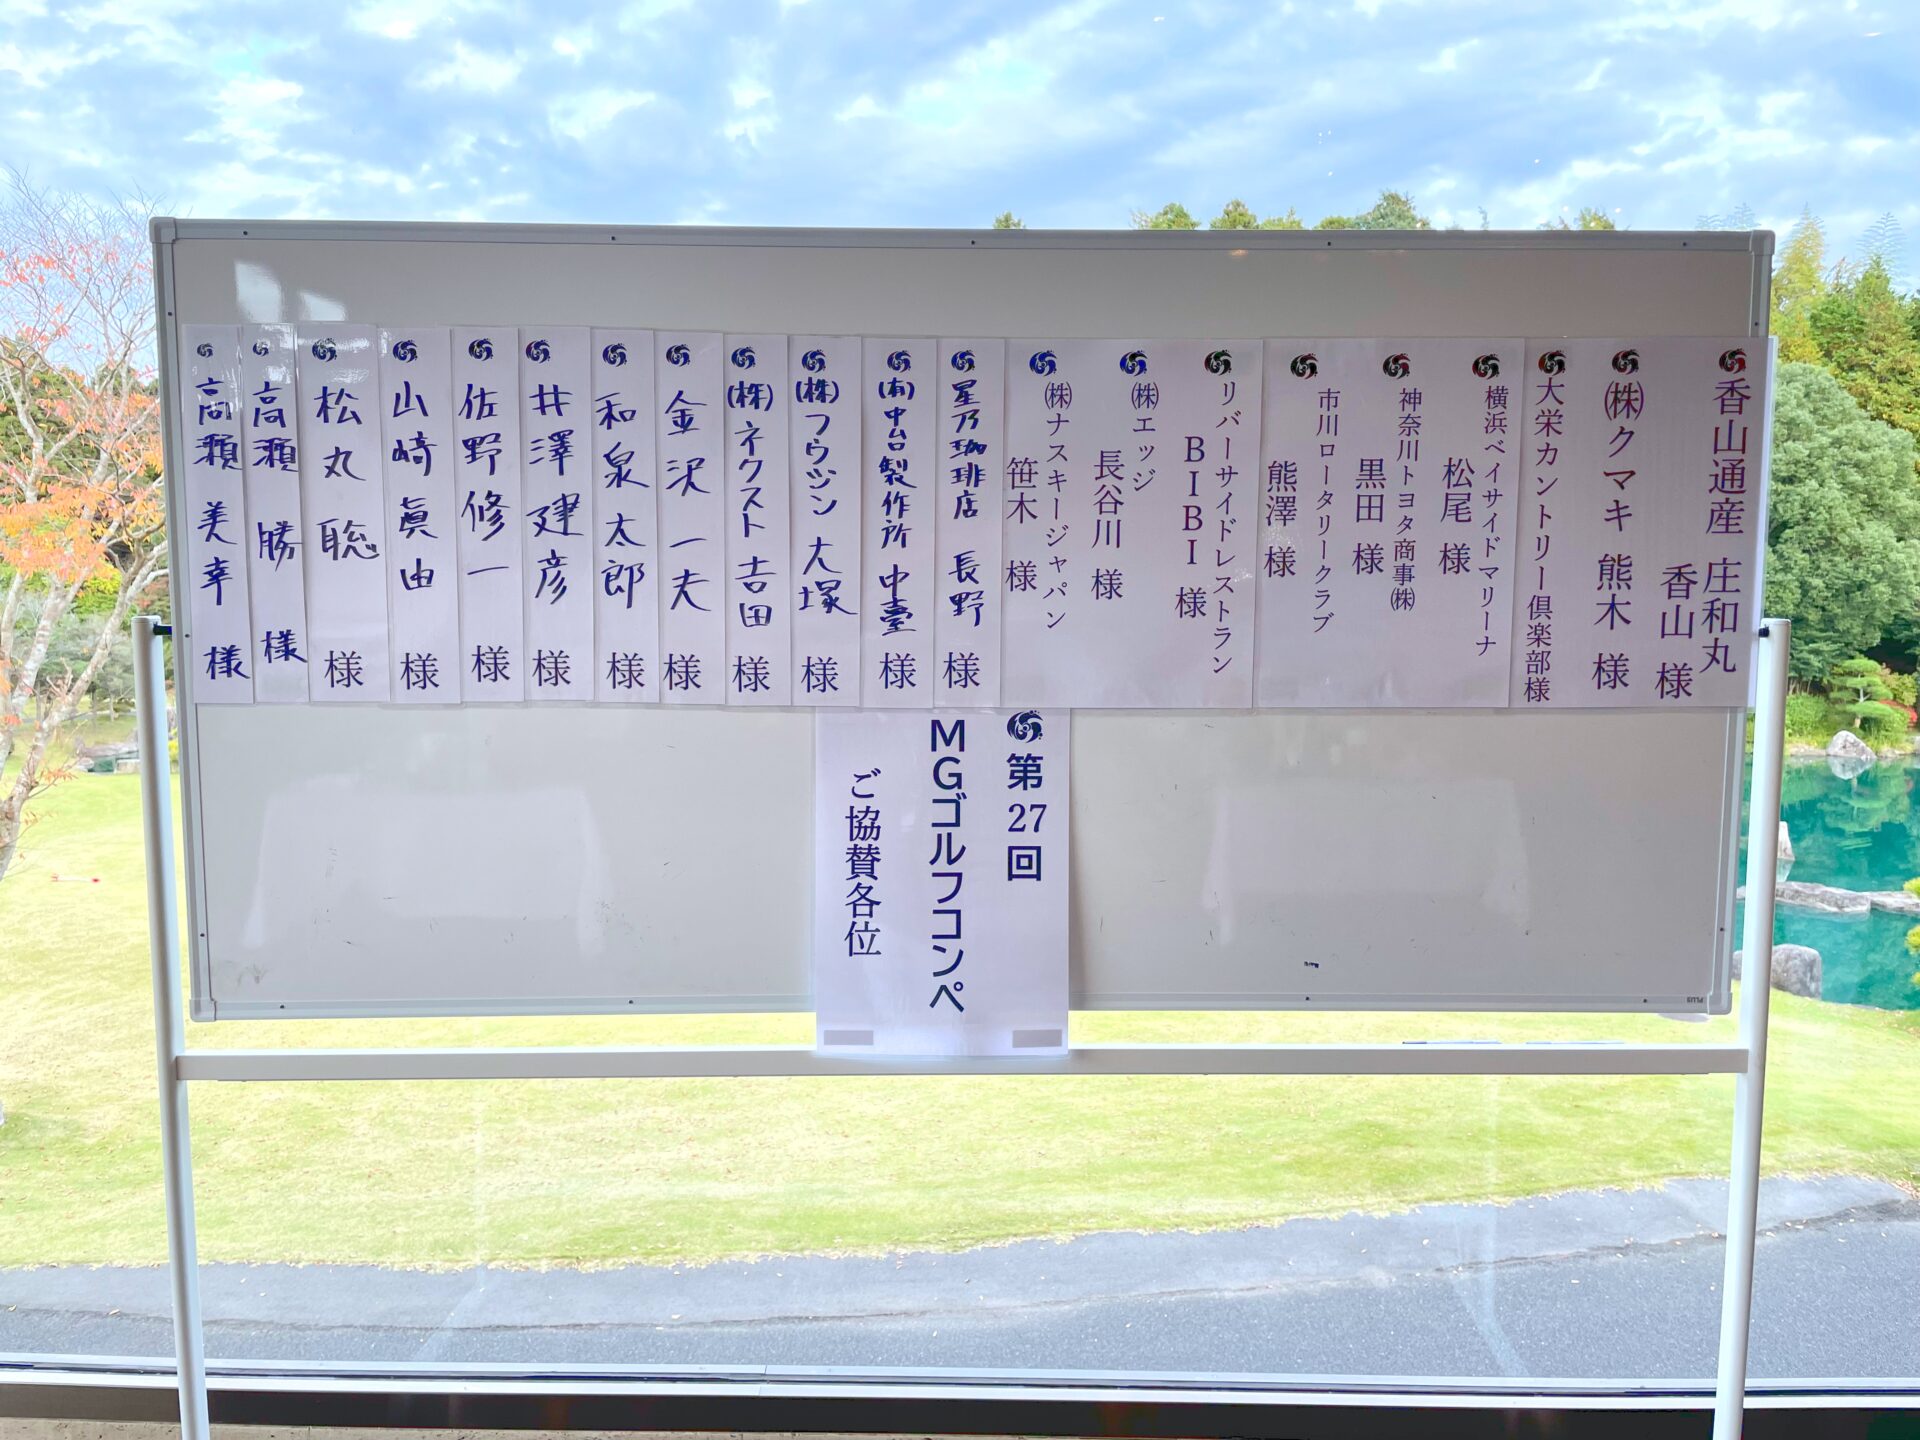 香山通産 庄和丸
香山 様
㈱クマキ 熊木 様
大栄カントリー倶楽部様
横浜ベイサイドマリーナ
松尾 様
神奈川トヨタ商事㈱
黒田 様
市川ロータリークラブ
熊澤 様
リバーサイドレストラン
BIBI 様
㈱エッジ
長谷川 様
㈱ナスキージャパン
笹木 様
星乃珈琲店 長野 様
(有)中台製作所 中臺 様
(株)フウジン 大塚 様
(株)ネクスト 吉田 様
金沢 一夫 様
和泉 太郎 様
井澤 建彦 様
佐野 修一 様
山崎 眞由 様
松丸 聡 様
高瀬 勝 様
高瀬 美幸 様
第27回
MGゴルフコンペ
ご協賛各位
PLUS